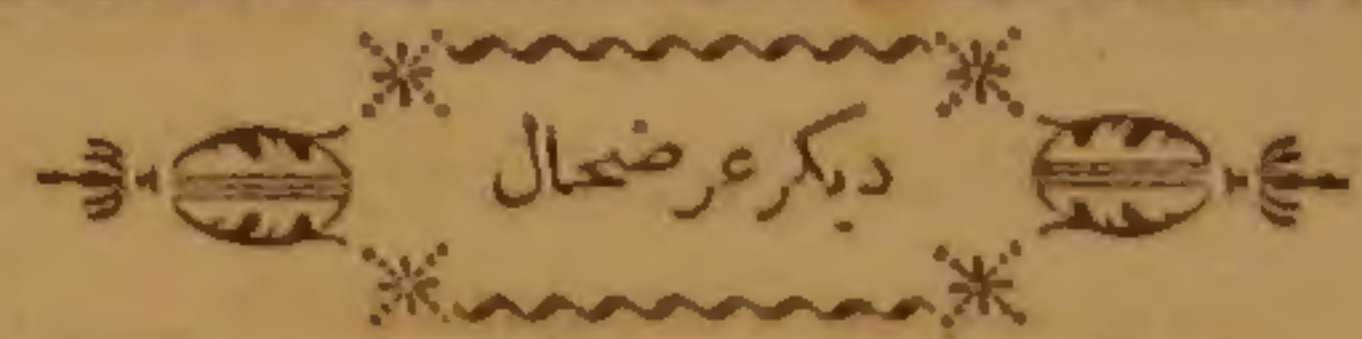 ديكر عرضحال